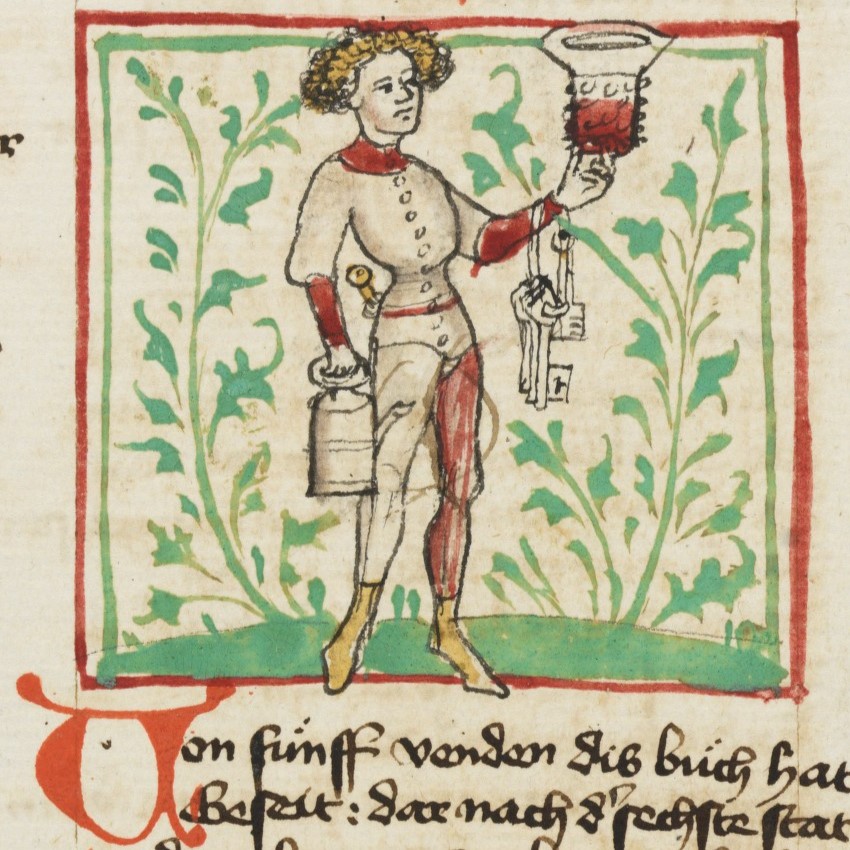 r
Von fúnff venden dis buͦch hat
Geseit : dar nach dˀ sechste stat